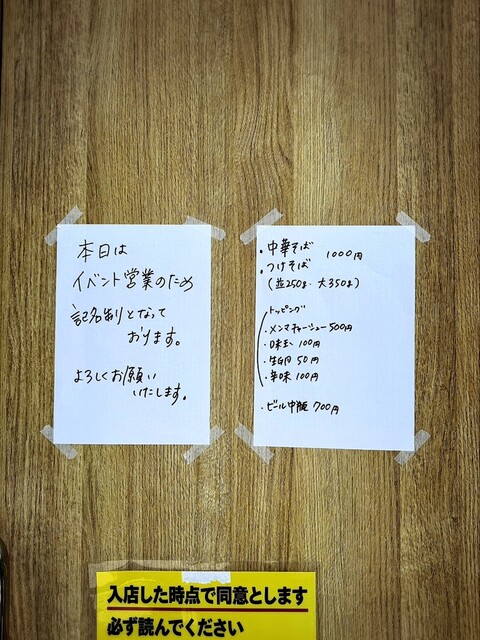 本日は
イベント営業のため
記名制となって
おります。
よろしくお願い
いたします。
・中華そば 1000円
・つけそば
(並250g・大350g)
トッピング
・メンマチャーシュー500円
・味玉 100円
・生卵 50円
・辛味 100円
・ビール中瓶 700円
入店した時点で同意とします
必ず読んでください